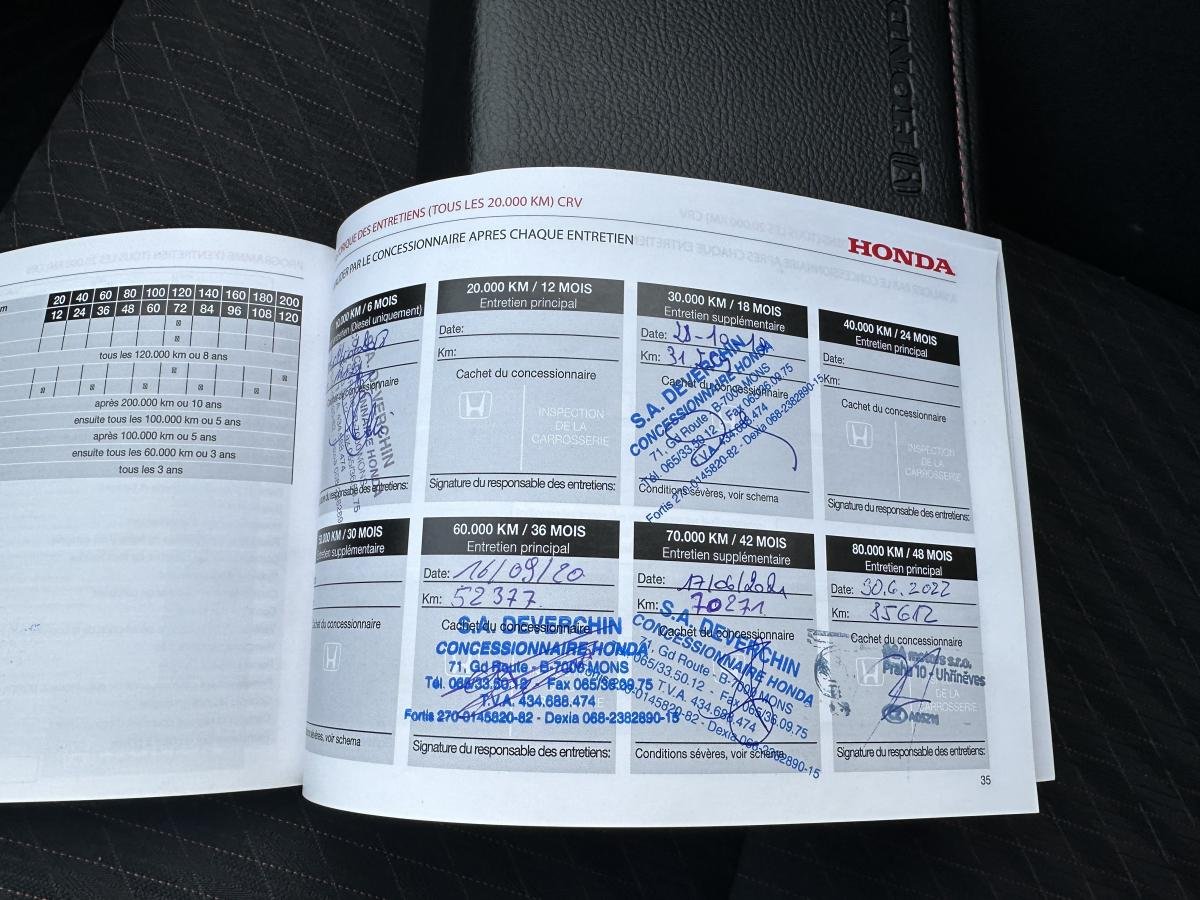 HONDA
PROGRAMME D'ENTRETIEN (TOUS LES 20.000 KM) CRV
20 40 60 80 100 120 140 160 180 200
12 24 36 48 60 72 84 96 108 120
tous les 120.000 km ou 8 ans
après 200.000 km ou 10 ans
ensuite tous les 100.000 km ou 5 ans
après 100.000 km ou 5 ans
ensuite tous les 60.000 km ou 3 ans
tous les 3 ans
DES ENTRETIENS (TOUS LES 20.000 KM) CRV
PAR LE CONCESSIONNAIRE APRES CHAQUE ENTRETIEN
HONDA
/ 6 MOIS
(Diesel uniquement)
S.A. DEVERCHIN
CONCESSIONNAIRE HONDA
responsable des entretiens:
20.000 KM / 12 MOIS
Entretien principal
Date:
Km:
Cachet du concessionnaire
INSPECTION
DE LA
CARROSSERIE
Signature du responsable des entretiens:
30.000 KM / 18 MOIS
Entretien supplémentaire
Date:
Km:
Cachet du concessionnaire
S.A. DEVERCHIN
CONCESSIONNAIRE HONDA
71, Gd Route - B-7000 MONS
Tél. 065/33.50.12 - Fax 065/36.09.75
T.V.A. 434.688.474
Fortis 270-0145820-82 - Dexia 068-2382890-15
Conditions sévères, voir schema
40.000 KM / 24 MOIS
Entretien principal
Date:
Km:
Cachet du concessionnaire
INSPECTION
DE LA
CARROSSERIE
Signature du responsable des entretiens:
/ 30 MOIS
Entretien supplémentaire
Cachet du concessionnaire
sévères, voir schema
60.000 KM / 36 MOIS
Entretien principal
Date: 16/09/20
Km: 52377
Cachet du concessionnaire
S.A. DEVERCHIN
CONCESSIONNAIRE HONDA
71, Gd Route - B-7000 MONS
Tél. 065/33.50.12 - Fax 065/36.09.75
T.V.A. 434.688.474
Fortis 270-0145820-82 - Dexia 068-2382890-15
Signature du responsable des entretiens:
70.000 KM / 42 MOIS
Entretien supplémentaire
Date: 17/06/2021
Km: 70271
Cachet du concessionnaire
S.A. DEVERCHIN
CONCESSIONNAIRE HONDA
71, Gd Route - B-7000 MONS
065/33.50.12 - Fax 065/36.09.75
T.V.A. 434.688.474
0145820-82 - Dexia 068-2382890-15
Conditions sévères, voir schema
80.000 KM / 48 MOIS
Entretien principal
Date: 30.6.2022
Km: 85612
Cachet du concessionnaire
motors s.r.o.
Praha 10 - Uhříněves
DE LA
CARROSSERIE
Signature du responsable des entretiens:
35